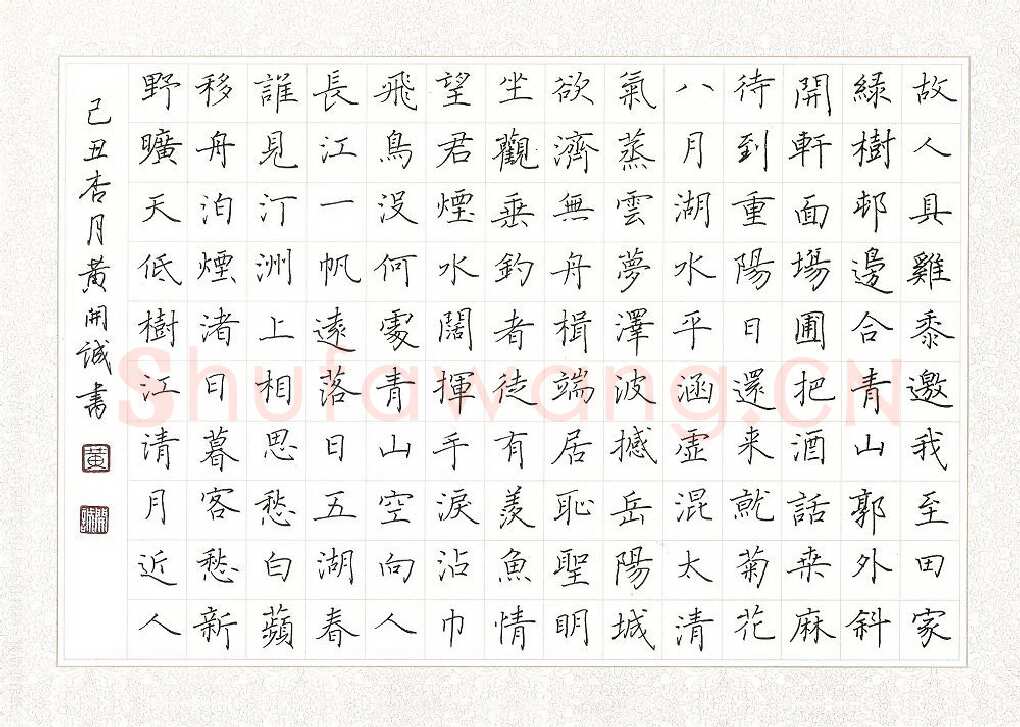 故人具雞黍邀我至田家
綠樹邨邊合青山郭外斜
開軒面場圃把酒話桒麻
待到重陽日還来就菊花
八月湖水平涵虛混太清
氣蒸雲夢澤波撼岳陽城
欲濟無舟楫端居恥聖明
坐觀垂釣者徒有羨魚情
望君煙水闊揮手淚沾巾
飛鳥没何處青山空向人
長江一帆遠落日五湖春
誰見汀洲上相思愁白蘋
移舟泊煙渚日暮客愁新
野曠天低樹江清月近人
己丑杏月黄開誠書
黄
Shufawang.CN